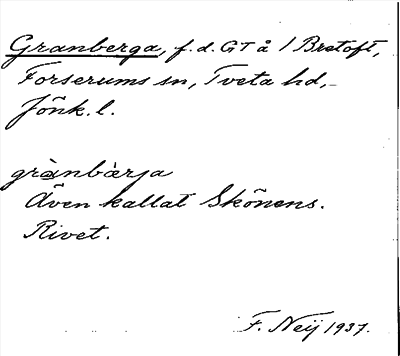 Granberga, f. d. GT å 1 Bratoft,
Forserums sn, Tveta hd,
Jönk. l.
grànbàrja
Även kallat Skönens.
Rivet.
F. Neij 1937.